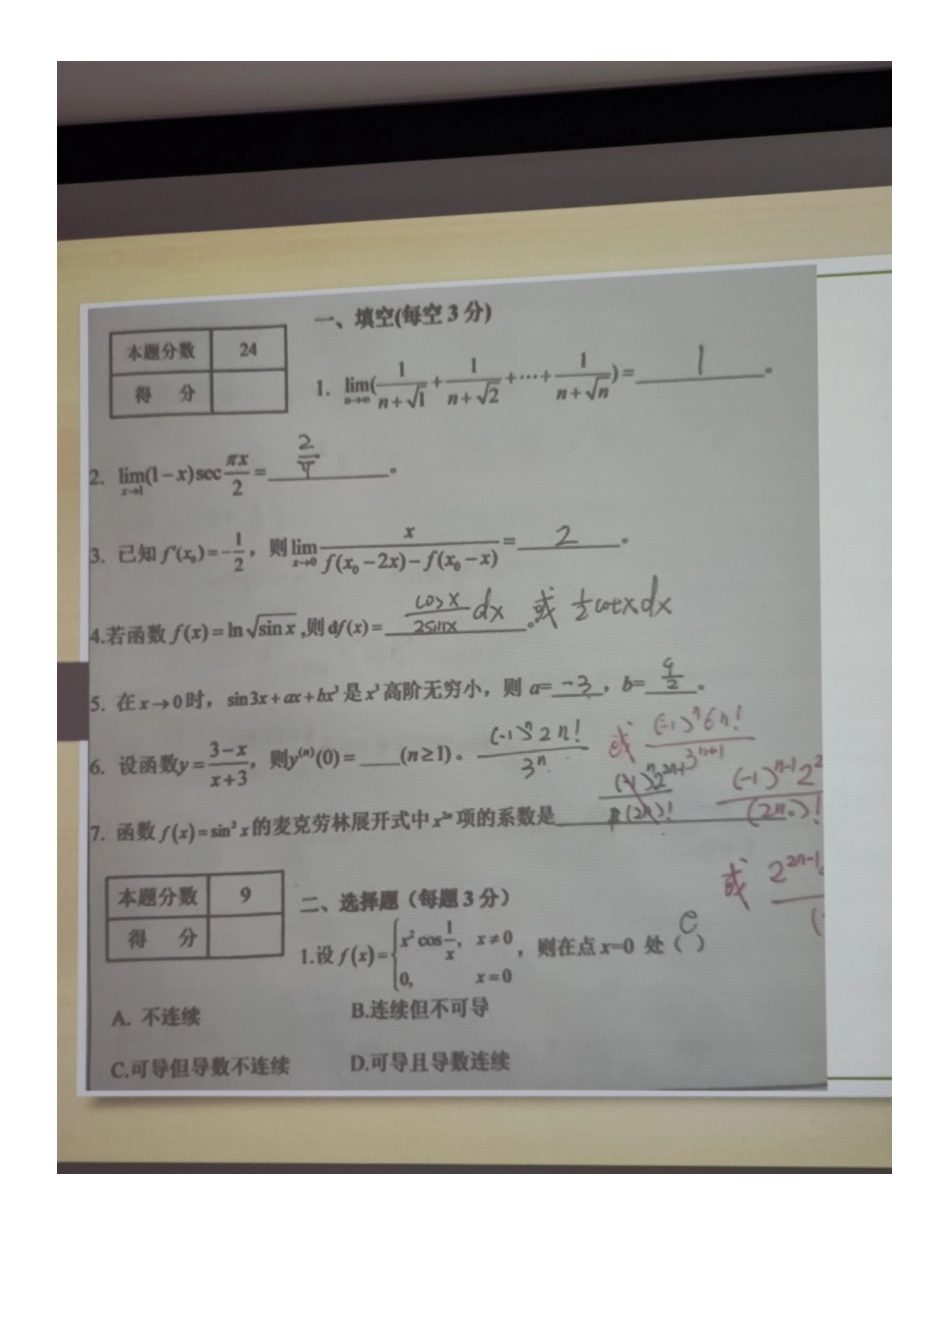 一、填空(每空 3 分)
本题分数 24
得 分
1. lim(n→∞) (1/(n+√1) + 1/(n+√2) + ⋯ + 1/(n+√n)) = 1 。
2. lim(x→1) (1−x) sec πx/2 = 2/π 。
3. 已知 f′(x₀) = −1/2 ，则 lim(x→0) x/(f(x₀−2x)−f(x₀−x)) = 2 。
4.若函数 f(x) = ln √(sin x) ,则 df(x) = cosx/2sinx dx 。或 ½cotxdx
5. 在 x→0时，sin3x + ax + bx³ 是 x³ 高阶无穷小，则 a= -3 ，b= 9/2 。
6. 设函数y = (3−x)/(x+3)，则y⁽ⁿ⁾(0) = ____ (n≥1) 。 (-1)ⁿ2n!/3ⁿ 或 (-1)ⁿ6n!/3ⁿ⁺¹
7. 函数 f(x) = sin² x 的麦克劳林展开式中 x²ⁿ 项的系数是
(-1)ⁿ⁻¹2²
(2n)!
或 2²ⁿ⁻¹
本题分数 9
得 分
二、选择题（每题 3 分）
1.设 f(x) = { x² cos 1/x, x≠0; 0, x=0 ，则在点 x=0 处 ( C )
A. 不连续 B.连续但不可导
C.可导但导数不连续 D.可导且导数连续